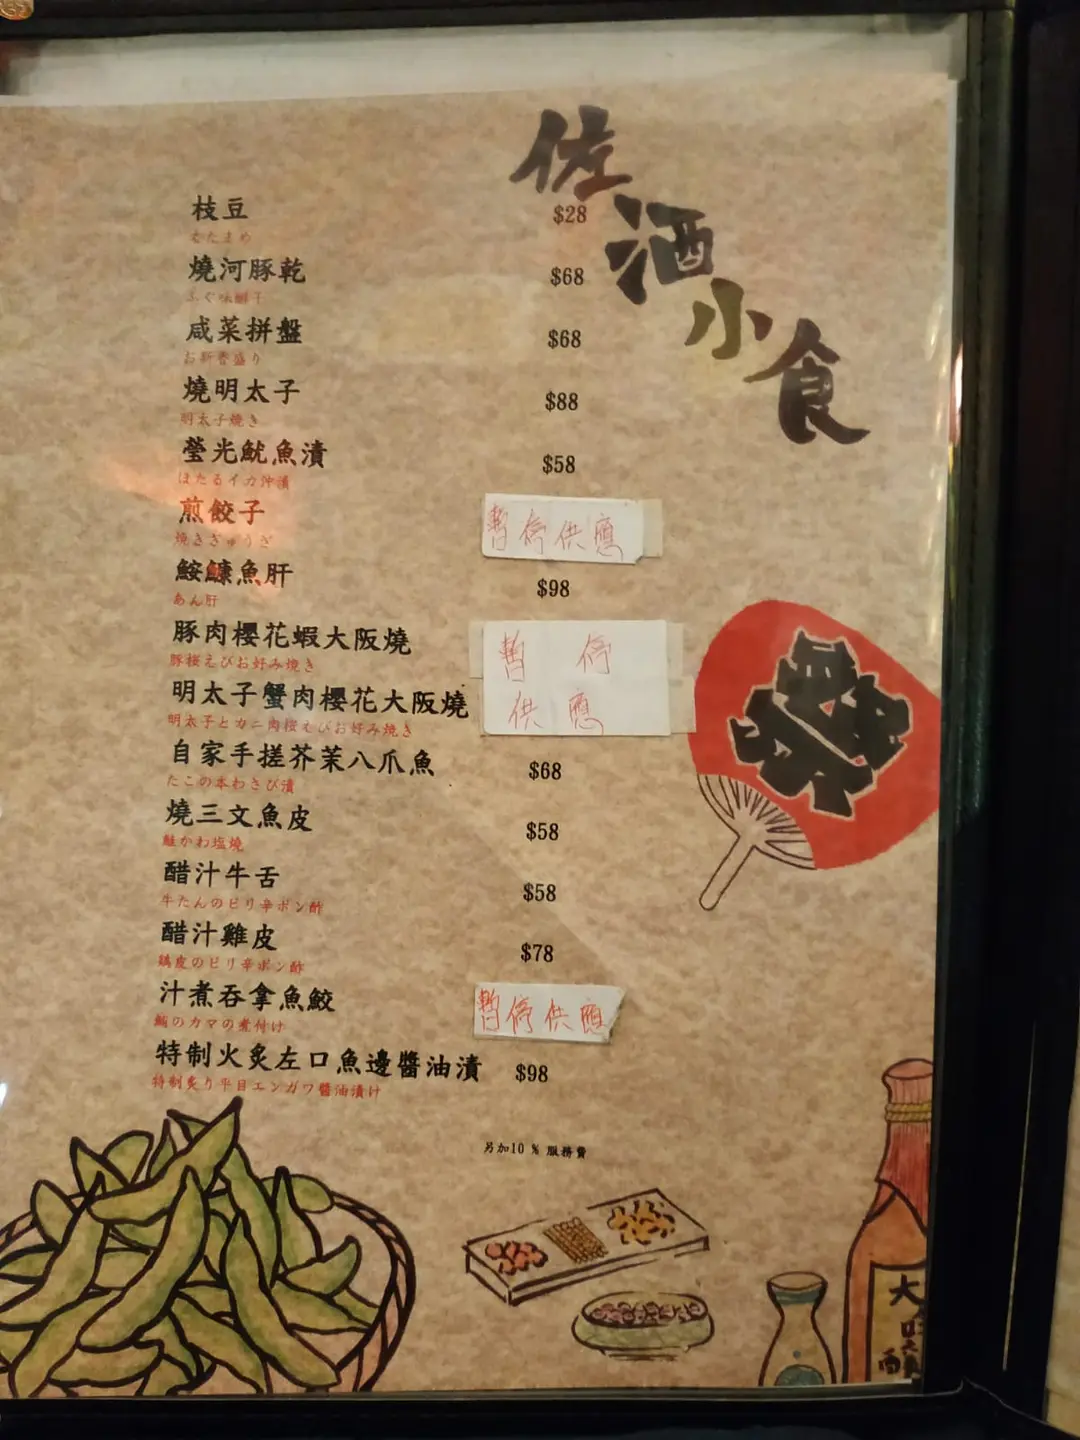 佐酒小食
枝豆 $28
えだまめ
燒河豚乾 $68
ふぐ味醂干
咸菜拼盤 $68
お新香盛り
燒明太子 $88
明太子焼き
瑩光魷魚漬 $58
ほたるイカ沖漬
煎餃子 暫停供應
焼きぎょうざ
鮟鱇魚肝 $98
あん肝
豚肉櫻花蝦大阪燒 暫停
豚桜えびお好み焼き
明太子蟹肉櫻花大阪燒 供應
明太子とカニ肉桜えびお好み焼き
自家手搓芥茉八爪魚 $68
たこの本わさび漬
燒三文魚皮 $58
鮭かわ塩焼
醋汁牛舌 $58
牛たんのピリ辛ポン酢
醋汁雞皮 $78
鶏皮のピリ辛ポン酢
汁煮吞拿魚鮫 暫停供應
鮪のカマの煮付け
特制火炙左口魚邊醬油漬 $98
特制炙り平目エンガワ醬油漬け
另加10 % 服務費
祭
大